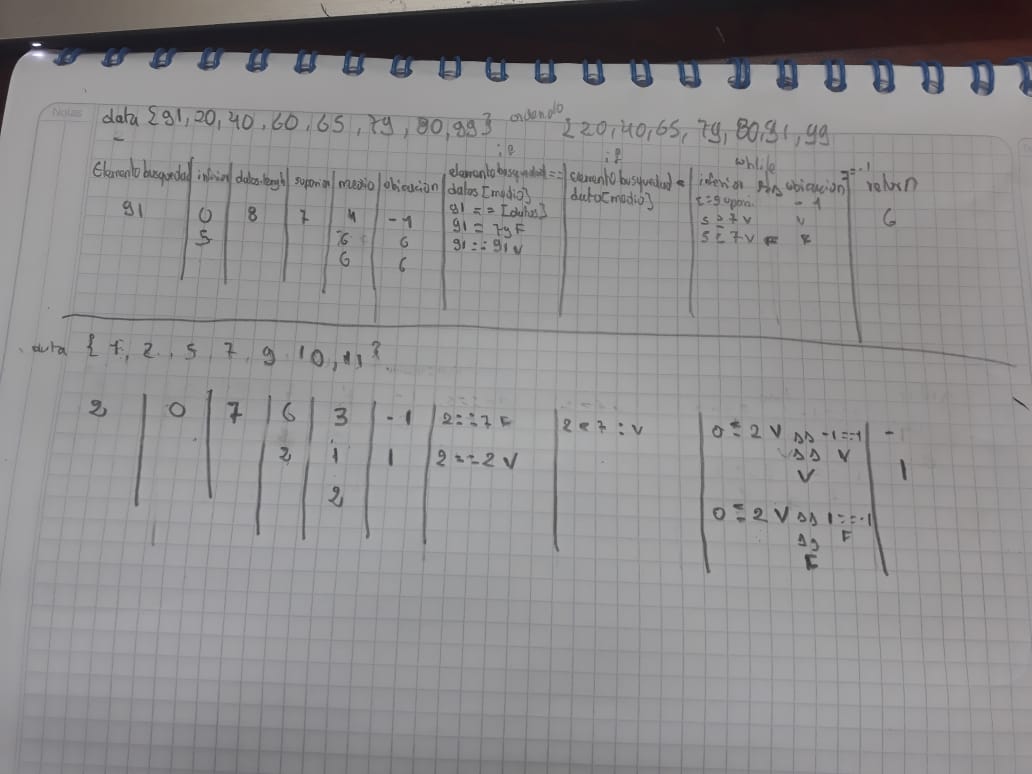 Notas
data {91, 20, 40, 60, 65, 79, 80, 99} ordenado {20, 40, 65, 79, 80, 91, 99
if if while
Elemento busquedad inferior datos.lengh superior medio ubicacion elemento busquedad == datos [medio] elemento busquedad < dato [medio] inferior ubicacion == -1 return
91 0 8 7 4 -1 91 == [datos] - 1 6
5 6 6 91 = 79 F 5 = 7 V V
6 6 91 == 91 V 5 = 7 V F
data { 1, 2, 5, 7, 9, 10, 11 }
2 0 7 6 3 -1 2 == 7 F 2 < 7 : V 0 = 2 V && -1 == -1 -1
2 1 1 2 == 2 V && V 1
2 V
0 = 2 V && 1 == -1
&& F
F